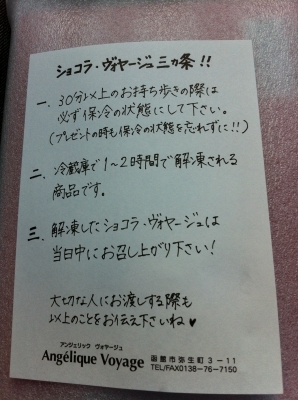 ショコラ・ヴォヤージュ三ヵ条!!
一、30分以上のお持ち歩きの際は
必ず保冷の状態にして下さい。
(プレゼントの時も保冷の状態を忘れずに!!)
二、冷蔵庫で1~2時間で解凍される
商品です。
三、解凍したショコラ・ヴォヤージュは
当日中にお召し上がり下さい!
大切な人にお渡しする際も
以上のことをお伝え下さいね♥
アンジェリック ヴォヤージュ
Angélique Voyage 函館市弥生町3-11
TEL/FAX0138-76-7150